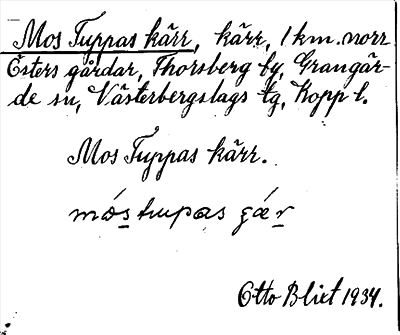 Mos Tuppas kärr, kärr, 1 km. norr
Östers gårdar, Thorsberg by, Grangär-
de sn, Västerbergslags tg, Kopp l.
Mos Tuppas kärr.
Otto Blixt 1934.